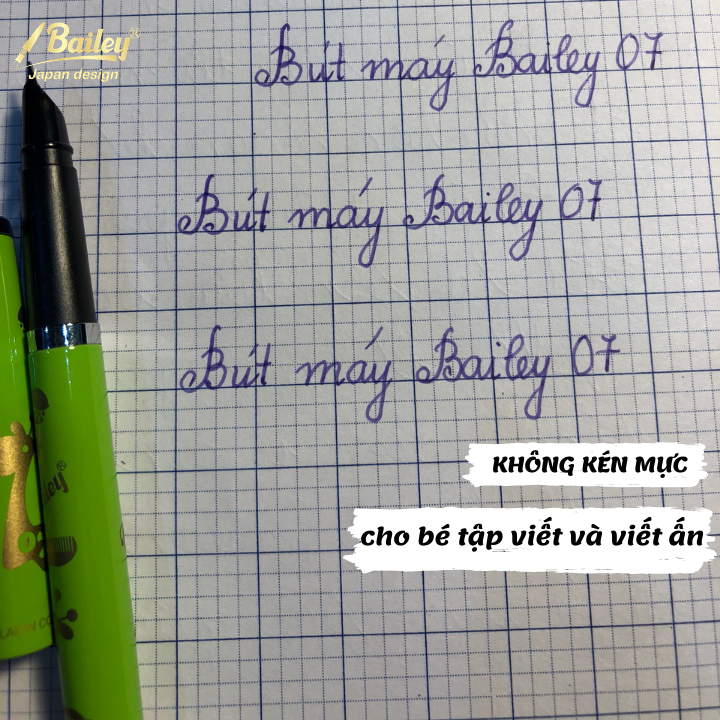 Bailey®
Japan design
Bút máy Bailey 07
Bút máy Bailey 07
Bút máy Bailey 07
KHÔNG KÉN MỰC
cho bé tập viết và viết ấn